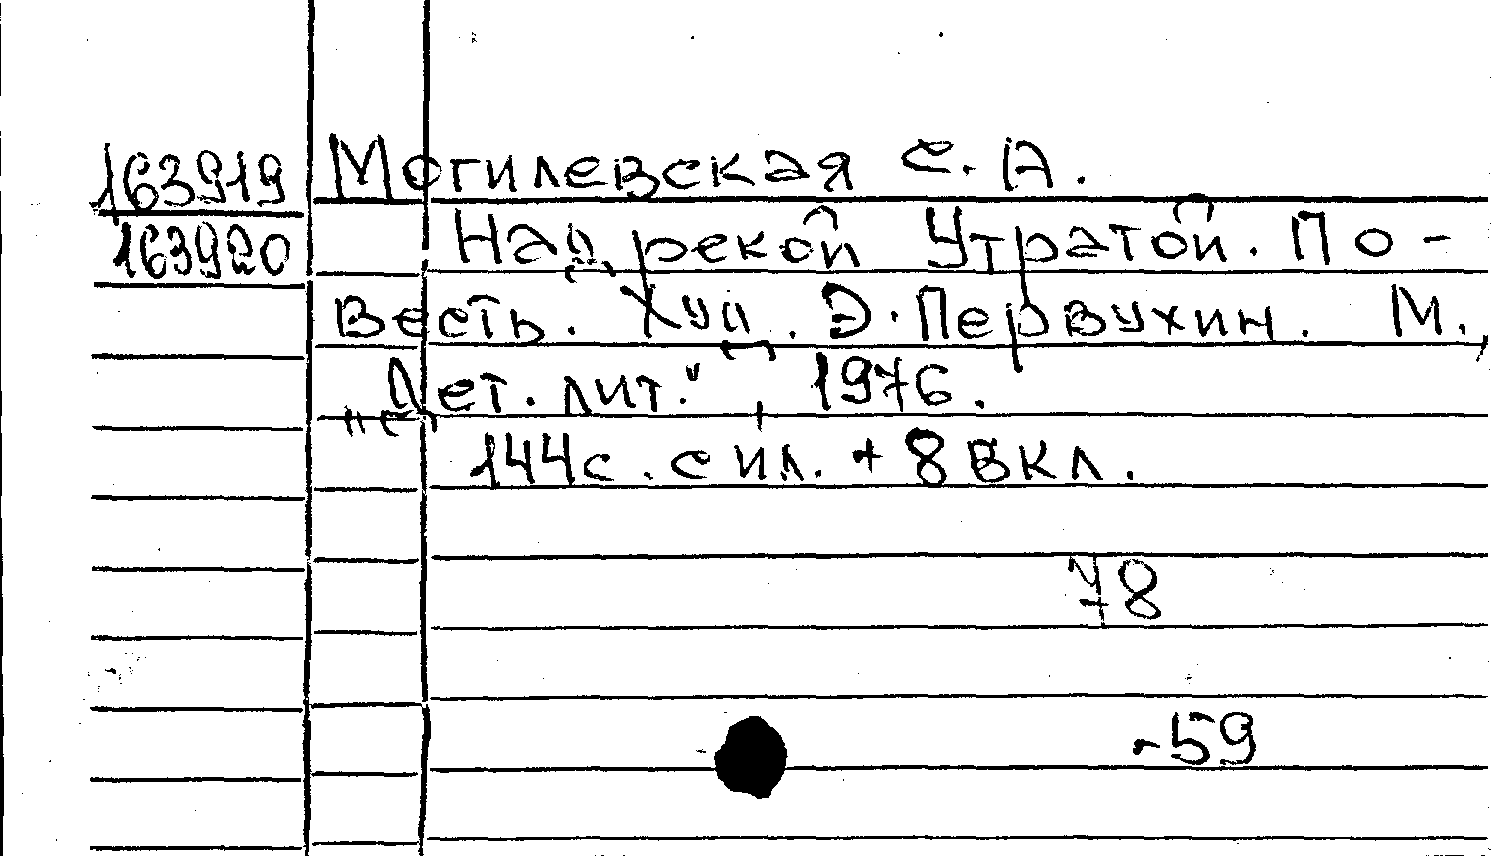 163919 Могилевская С. А.
163920 Над рекой Утратой. По-
весть. Худ. Э. Первухин. М.,
"Дет. лит.", 1976.
144с. с ил. + 8 вкл.
78
-59